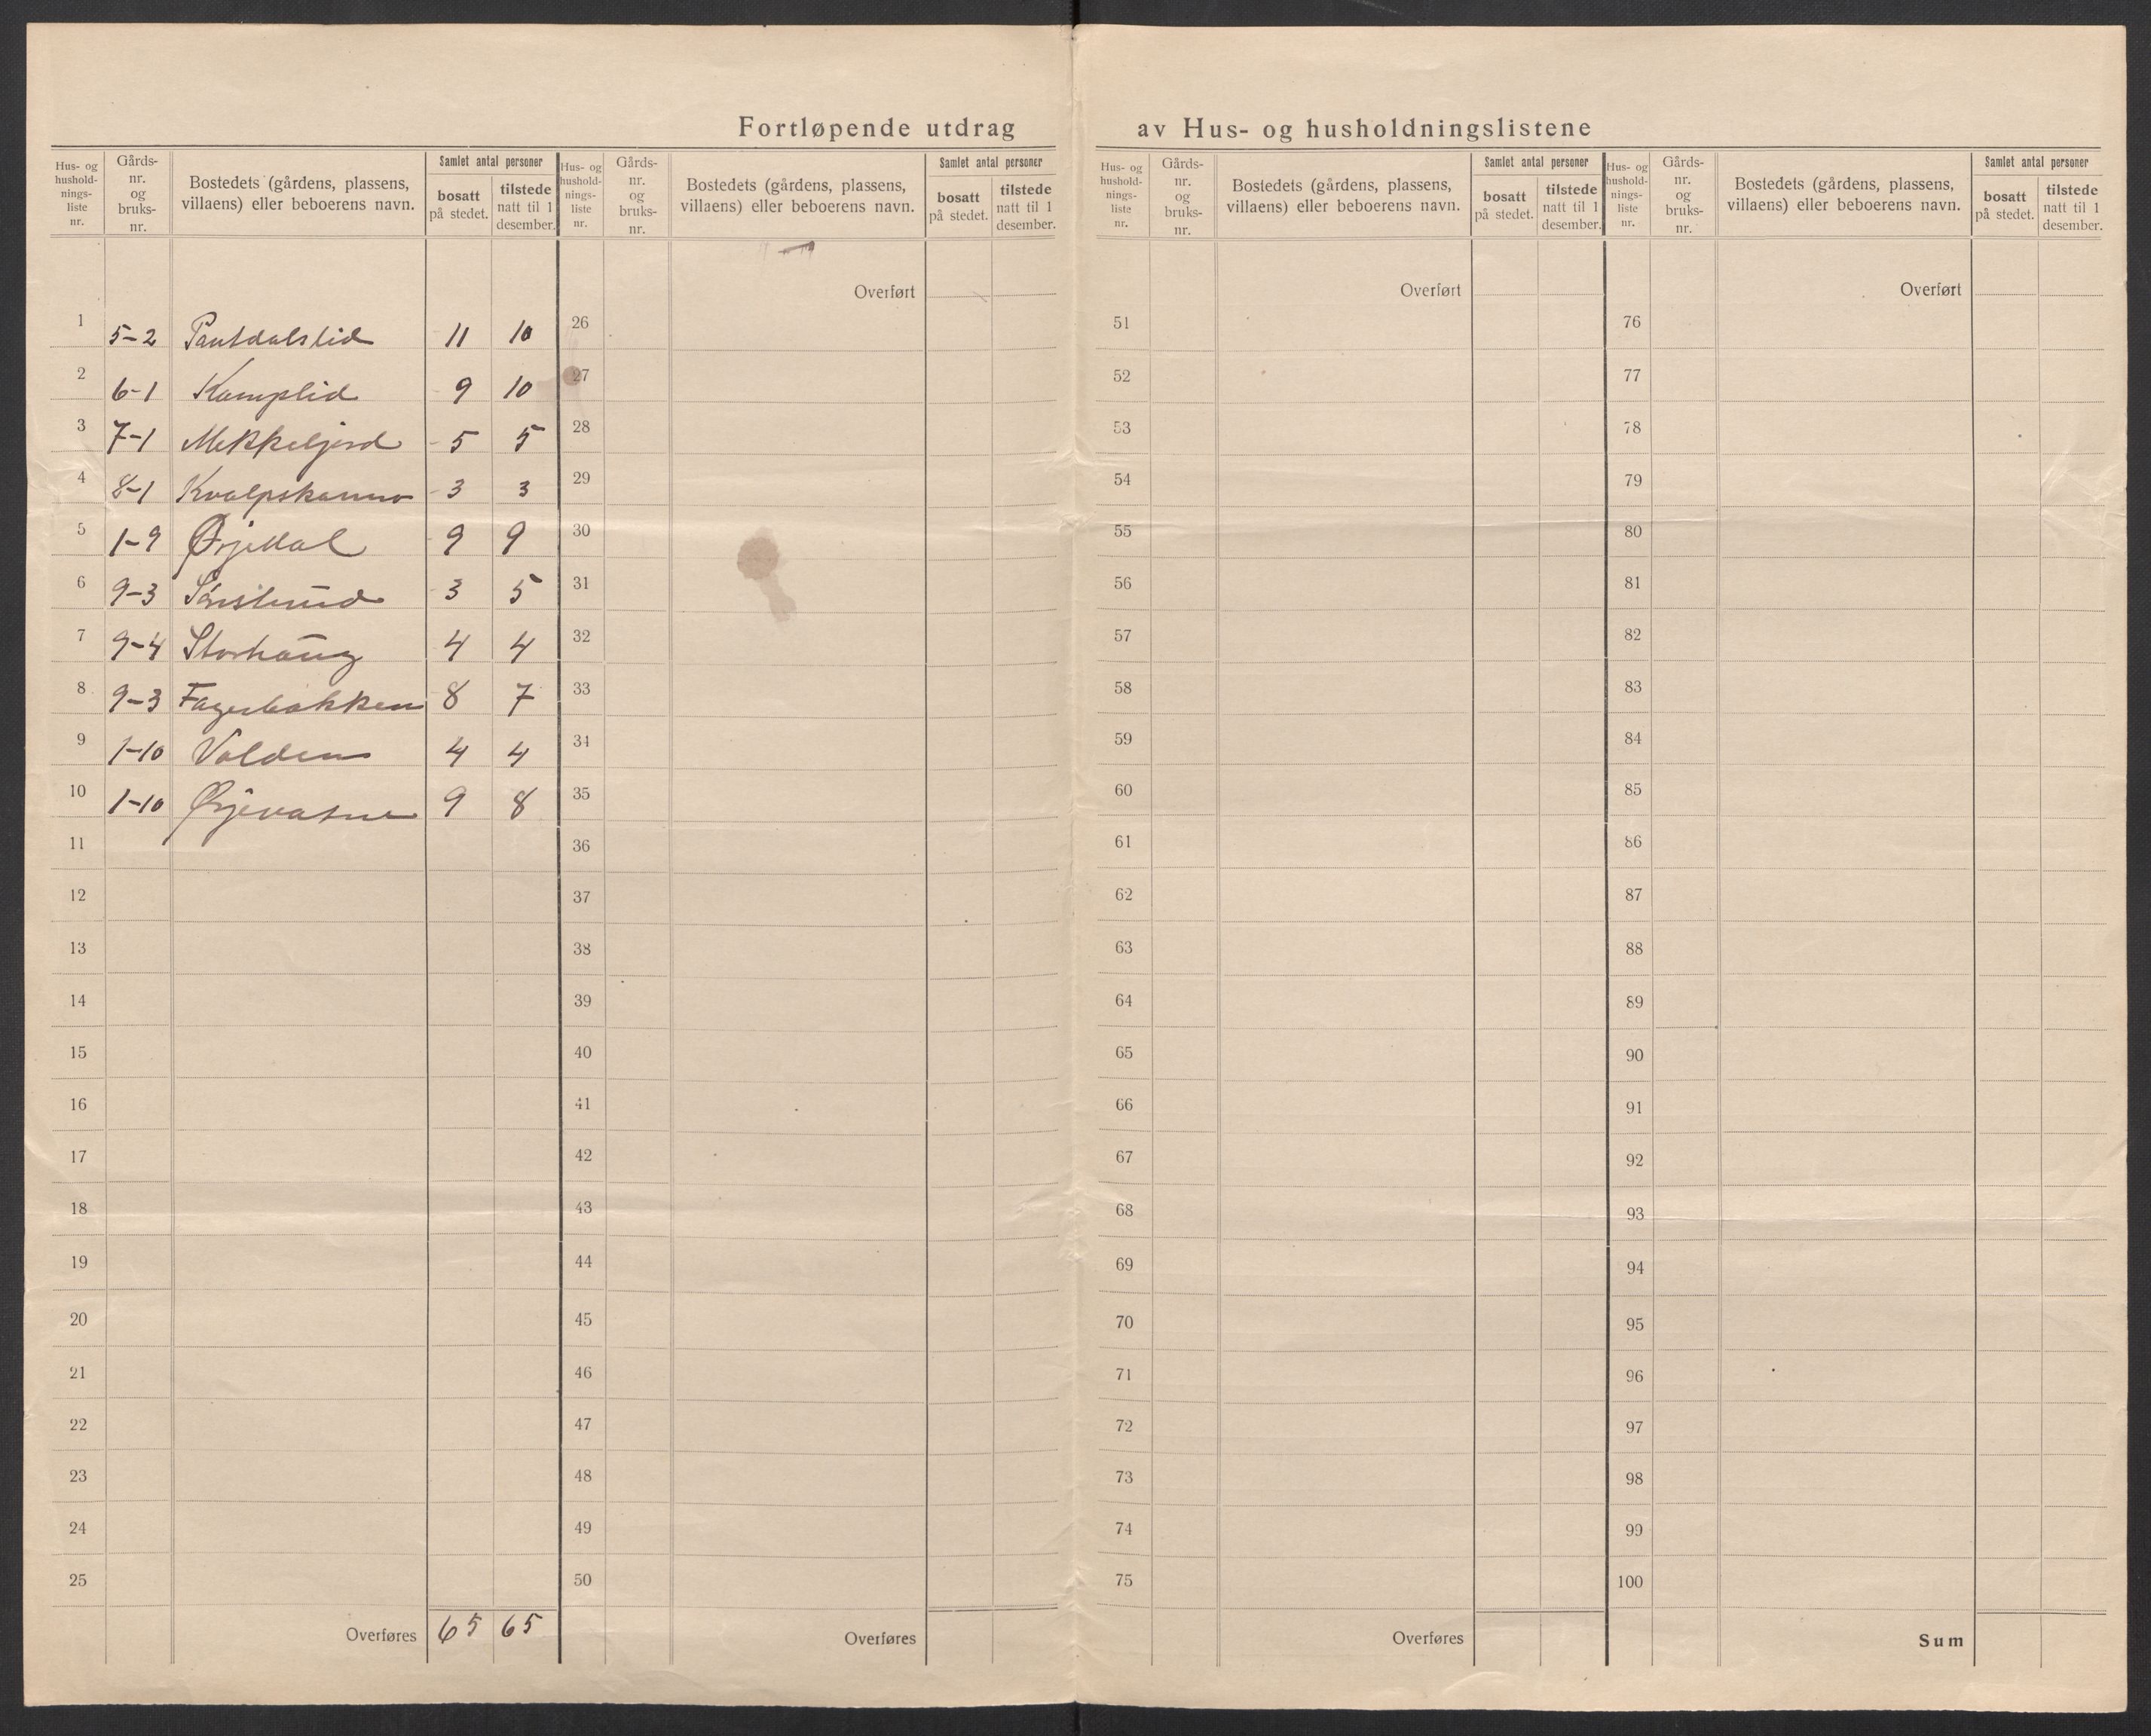 Fortløpende utdrag av Hus- og husholdningslistene
Hus- og hushold-nings-liste nr. Gårds-nr. og bruks-nr. Bostedets (gårdens, plassens, villaens) eller beboerens navn. Samlet antal personer bosatt på stedet. tilstede natt til 1 desember.
1 5-2 Pantdalslid 11 10
2 6-1 Kamplid 9 10
3 7-1 Mekkeljord 5 5
4 8-1 3 3
5 1-9 Ørjedal 9 9
6 9-3 3 5
7 9-4 Storhaug 4 4
8 9-3 Fagerbakken 8 7
9 1-10 Volden 4 4
10 1-10 Ørjevatne 9 8
11
12
13
14
15
16
17
18
19
20
21
22
23
24
25
Overføres 65 65
Hus- og hushold-nings-liste nr. Gårds-nr. og bruks-nr. Bostedets (gårdens, plassens, villaens) eller beboerens navn. Samlet antal personer bosatt på stedet. tilstede natt til 1 desember.
Overført
26
27
28
29
30
31
32
33
34
35
36
37
38
39
40
41
42
43
44
45
46
47
48
49
50
Overføres
Hus- og hushold-nings-liste nr. Gårds-nr. og bruks-nr. Bostedets (gårdens, plassens, villaens) eller beboerens navn. Samlet antal personer bosatt på stedet. tilstede natt til 1 desember.
Overført
51
52
53
54
55
56
57
58
59
60
61
62
63
64
65
66
67
68
69
70
71
72
73
74
75
Overføres
Hus- og hushold-nings-liste nr. Gårds-nr. og bruks-nr. Bostedets (gårdens, plassens, villaens) eller beboerens navn. Samlet antal personer bosatt på stedet. tilstede natt til 1 desember.
Overført
76
77
78
79
80
81
82
83
84
85
86
87
88
89
90
91
92
93
94
95
96
97
98
99
100
Sum